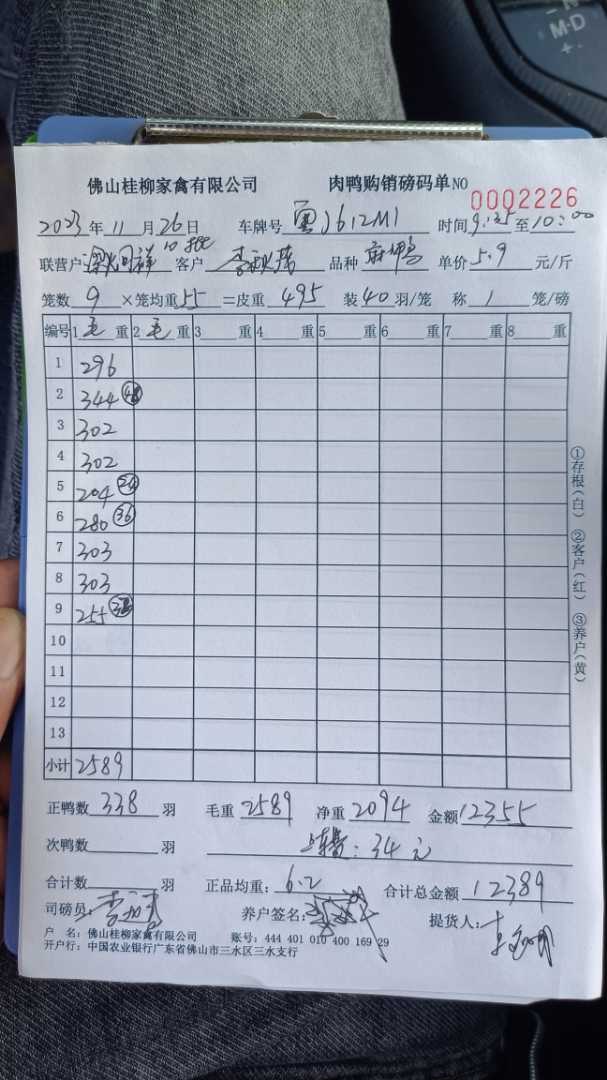 M·D
佛山桂柳家禽有限公司 肉鸭购销磅码单 NO 0002226
2023年11月26日 车牌号 粤J612M1 时间 9:25至10:00
联营户 客户 品种 单价5.9元/斤
笼数9×笼均重55=皮重495 装40羽/笼 称1笼/磅
编号 1毛重 2毛重 3重 4重 5重 6重 7重 8重
1 296
2 344 48
3 302
4 302
5 204 24
6 280 36
7 303
8 303
9 255
10
11
12
13
小计 2589
①存根(白) ②客户(红) ③养户(黄)
正鸭数338羽 毛重2589 净重2094 金额12355
次鸭数羽 上车费:34元
合计数羽 正品均重:6.2 合计总金额12389
司磅员: 养户签名: 提货人:
户 名:佛山桂柳家禽有限公司 账号:444 401 010 400 169 29
开户行:中国农业银行广东省佛山市三水区三水支行